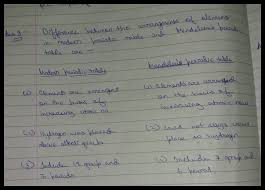 Difference between the arrangements of elements
in modern periodic table and Mendeleev's periodic
table are -
Modern periodic table
Mendeleev's periodic table
(1) Elements are arranged
on the basis of
increasing atomic no
(1) Elements are arranged
on the basis of
increasing atomic mass
(2) Hydrogen was placed
above alkali group
(2) Could not assign correct
place to hydrogen
(3) Include 18 group and
7 periods
(3) Include 7 group and
6 period.